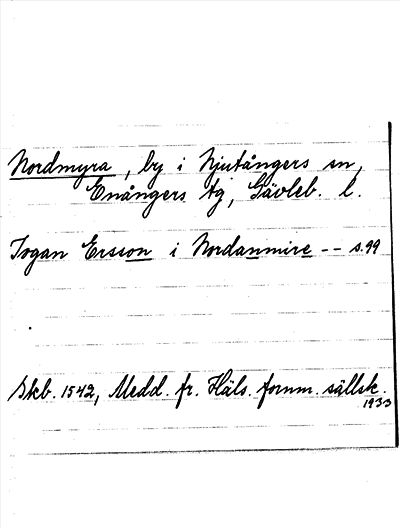 Nordmyra, by i Njutångers sn,
Enångers tg, Gävleb. l.
Jogan Ersson i Nordanmire -- s. 99
Skb. 1542, Medd. fr. Häls. fornm. sällsk.
1933